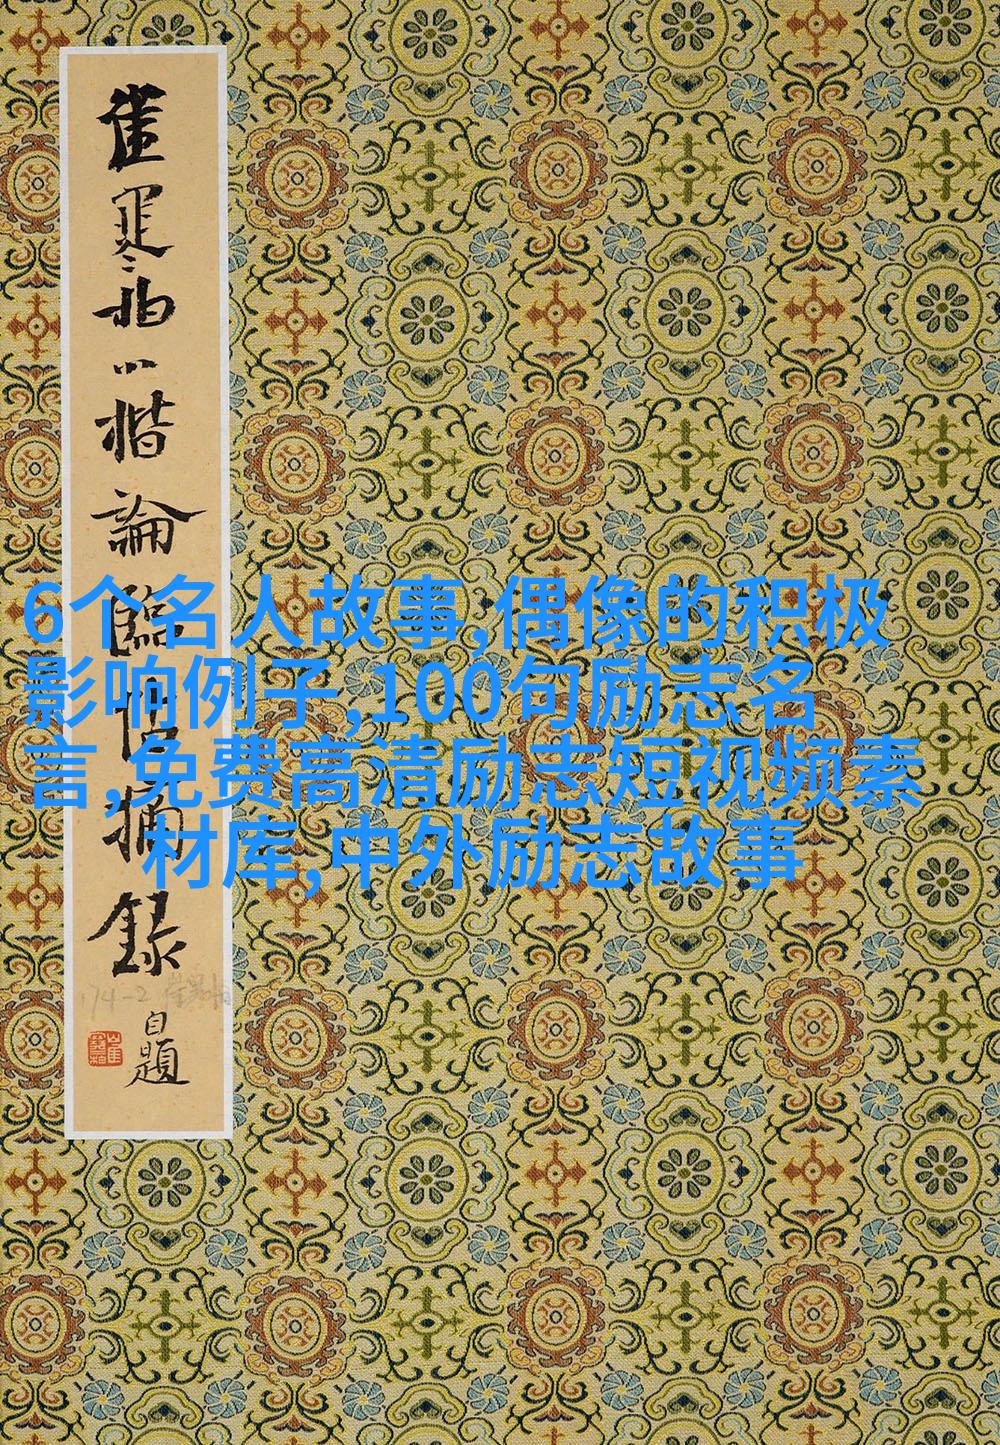 崔寒柏小楷論臨帖摘錄
自題
174-2
6个名人故事,偶像的积极
影响例子,100句励志名
言,免费高清励志短视频素
材库,中外励志故事